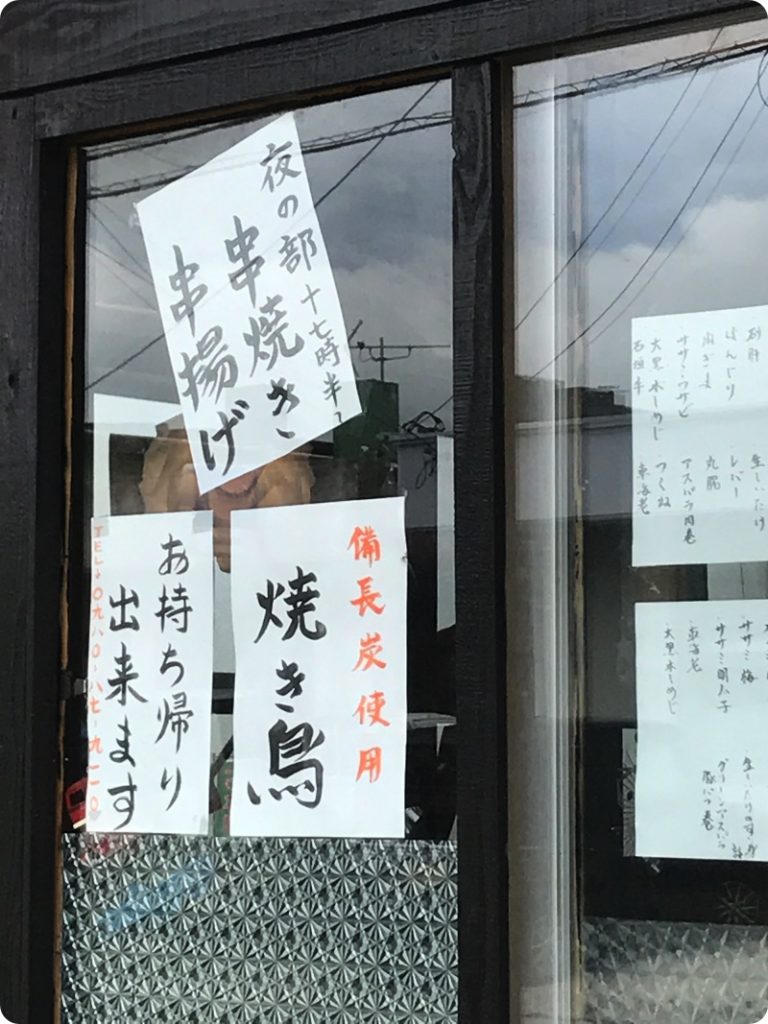 夜の部 十七時半〜
串焼き
串揚げ
備長炭使用
焼き鳥
お持ち帰り
出来ます
TEL→〇九八〇-八七-九一一〇
砂肝 生しいたけ
ぼんじり レバー
肉巻き 丸腸
・ササミ・ワサビ アスパラ肉巻
・大黒本しめじ ・つくね
石垣牛 車海老
ササミ 梅
ササミ 明太子
・車海老
・大黒本しめじ
グリーンアスパラ
豚バラ巻